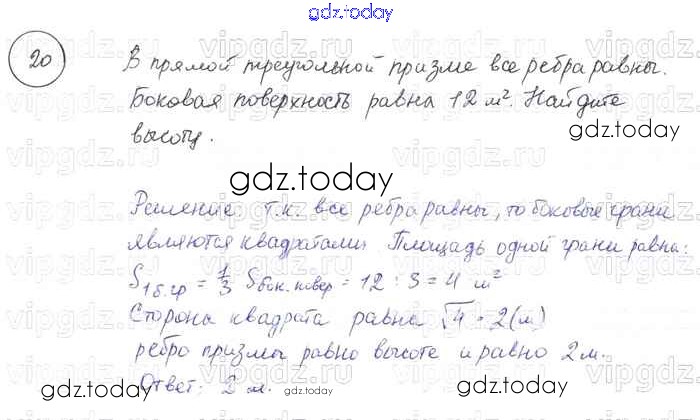 gdz.today
20
В прямой треугольной призме все ребра равны.
Боковая поверхность равна 12 м². Найдите
gdz.today
высоту.
gdz.today
Решение т.к. все ребра равны, то боковые грани
являются квадратами Площадь одной грани равна:
S1б.гр = 1/3 Sбок.повер = 12 : 3 = 4 м²
Сторона квадрата равна √4 = 2(м)
ребро призмы равно высоте и равно 2 м.
gdz.today
Ответ: 2 м.
gdz.today
gdz.today
vipgdz.ru